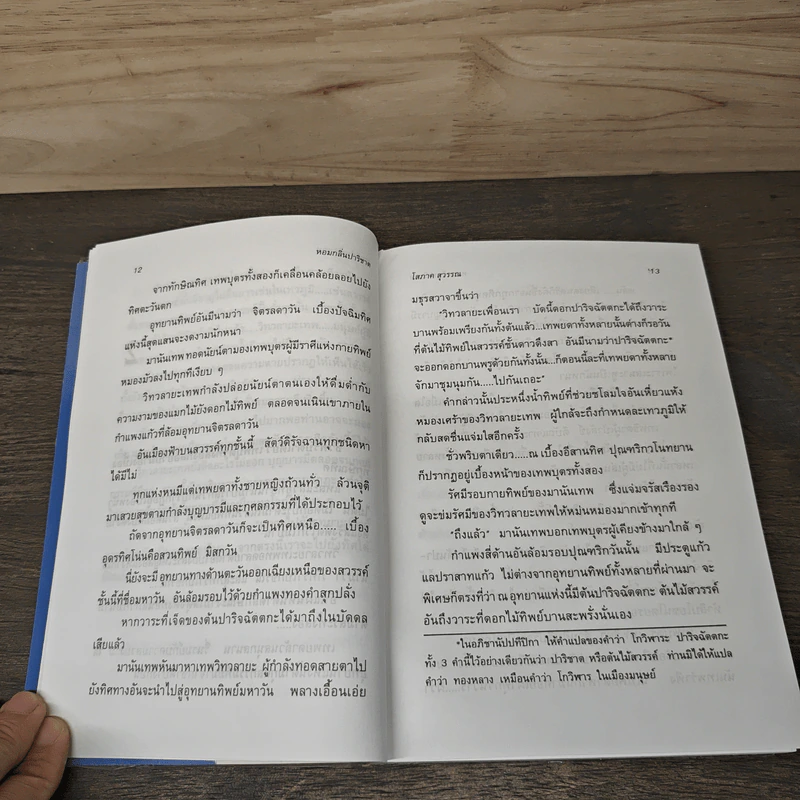 12
หอมกลิ่นปาริชาต
จากทักษิณทิศ เทพบุตรทั้งสองก็เคลื่อนคล้อยลอยไปยัง
ทิศตะวันตก
อุทยานทิพย์อันมีนามว่า จิตรลดาวัน เบื้องปัจฉิมทิศ
แห่งนี้สุดแสนจะงดงามนักหนา
มานันเทพ ทอดนัยน์ตามองเทพบุตรผู้มีราศีแห่งกายทิพย์
หมองมัวลงไปทุกที่เงียบ ๆ
วิทวลายะเทพกำลังปล่อยนัยน์ตาตนเองให้ดื่มด่ำกับ
ความงามของแมกไม้ยังดอกไม้ทิพย์ ตลอดจนเนินเขาภายใน
กำแพงแก้วที่ล้อมอุทยานจิตรลดาวัน
อันเมืองฟ้าบนสวรรค์ทุกชั้นนี้ สัตว์ดิรัจฉานทุกชนิดหา
ได้มีไม่
ทุกแห่งหนมีแต่เทพยดาทั้งชายหญิงถ้วนทั่ว ล้วนจุติ
มาเสวยสุขตามกำลังบุญบารมีและกุศลกรรมที่ได้ประกอบไว้
ถัดจากอุทยานจิตรลดาวันก็จะเป็นทิศเหนือ..... เบื้อง
อุดรทิศโน่นคือสวนทิพย์ มิสกวัน
นี่ยังจะมี อุทยานทางด้านตะวันออกเฉียงเหนือของสวรรค์
ชั้นนี้ที่ชื่อมหาวัน อันล้อมรอบไว้ด้วยกำแพงทองคำสุกปลั่ง
หากวาระที่เจ็ดของต้นปาริจฉัตตกะได้มาถึงในบัดดล
เสียแล้ว
มานันเทพหันมาหาเทพวิทวลายะ ผู้กำลังทอดสายตาไป
ยังทิศทางอันจะนำไปสู่อุทยานทิพย์มหาวัน พลางเอื้อนเอ่ย
โสภาค สุวรรณ
13
มธุรสวาจาขึ้นว่า
"วิทวลายะเพื่อนเรา บัดนี้ดอกปาริจฉัตตกะได้ถึงวาระ
บานพร้อมเพรียงกันทั้งต้นแล้ว...เทพยดาทั้งหลายนั้นต่างก็รอวัน
ที่ต้นไม้ทิพย์ในสวรรค์ชั้นดาวดึงสา อันมีนามว่าปาริจฉัตตกะ*
จะออกดอกบานพรูด้วยกันทั้งนั้น...ก็ตอนนี้ละที่เทพยดาทั้งหลาย
จักมาชุมนุมกัน.....ไปกันเถอะ"
คำกล่าวนั้นประหนึ่งน้ำทิพย์ที่ช่วยชโลมใจอันเหี่ยวแห้ง
หมองเศร้าของวิทวลายะเทพ ผู้ใกล้จะถึงกำหนดละเทวภูมิให้
กลับสดชื่นแจ่มใสอีกครั้ง
ชั่วพริบตาเดียว.....ณ เบื้องอีสานทิศ ปุณฑริกวโนทยาน
ก็ปรากฏอยู่เบื้องหน้าของเทพบุตรทั้งสอง
รัศมีรอบกายทิพย์ของมานันเทพ ซึ่งแจ่มจรัสเรืองรอง
ดูจะข่มรัศมีของวิทวลายะเทพให้หม่นหมองมากเข้าทุกที
"ถึงแล้ว" มานันเทพบอกเทพบุตรผู้เคียงข้างมาใกล้ ๆ
กำแพงสี่ด้านอันล้อมรอบปุณฑริกวันนั้น มีประตูแก้ว
แลปราสาทแก้ว ไม่ต่างจากอุทยานทิพย์ทั้งหลายที่ผ่านมา จะ
พิเศษก็ตรงที่ว่า ณ อุทยานแห่งนี้มีต้นปาริจฉัตตกะ ต้นไม้สวรรค์
อันถึงวาระที่ดอกไม้ทิพย์บานสะพรั่งนั่นเอง
*ในอภิธานัปปทีปิกา ให้คำแปลของคำว่า โกวิฬาระ ปาริจฉัตตกะ
ทั้ง 3 คำนี้ไว้อย่างเดียวกันว่า ปาริชาด หรือต้นไม้สวรรค์ ท่านมิได้ให้แปล
คำว่า ทองหลาง เหมือนคำว่า โกวิฬาร ในเมืองมนุษย์